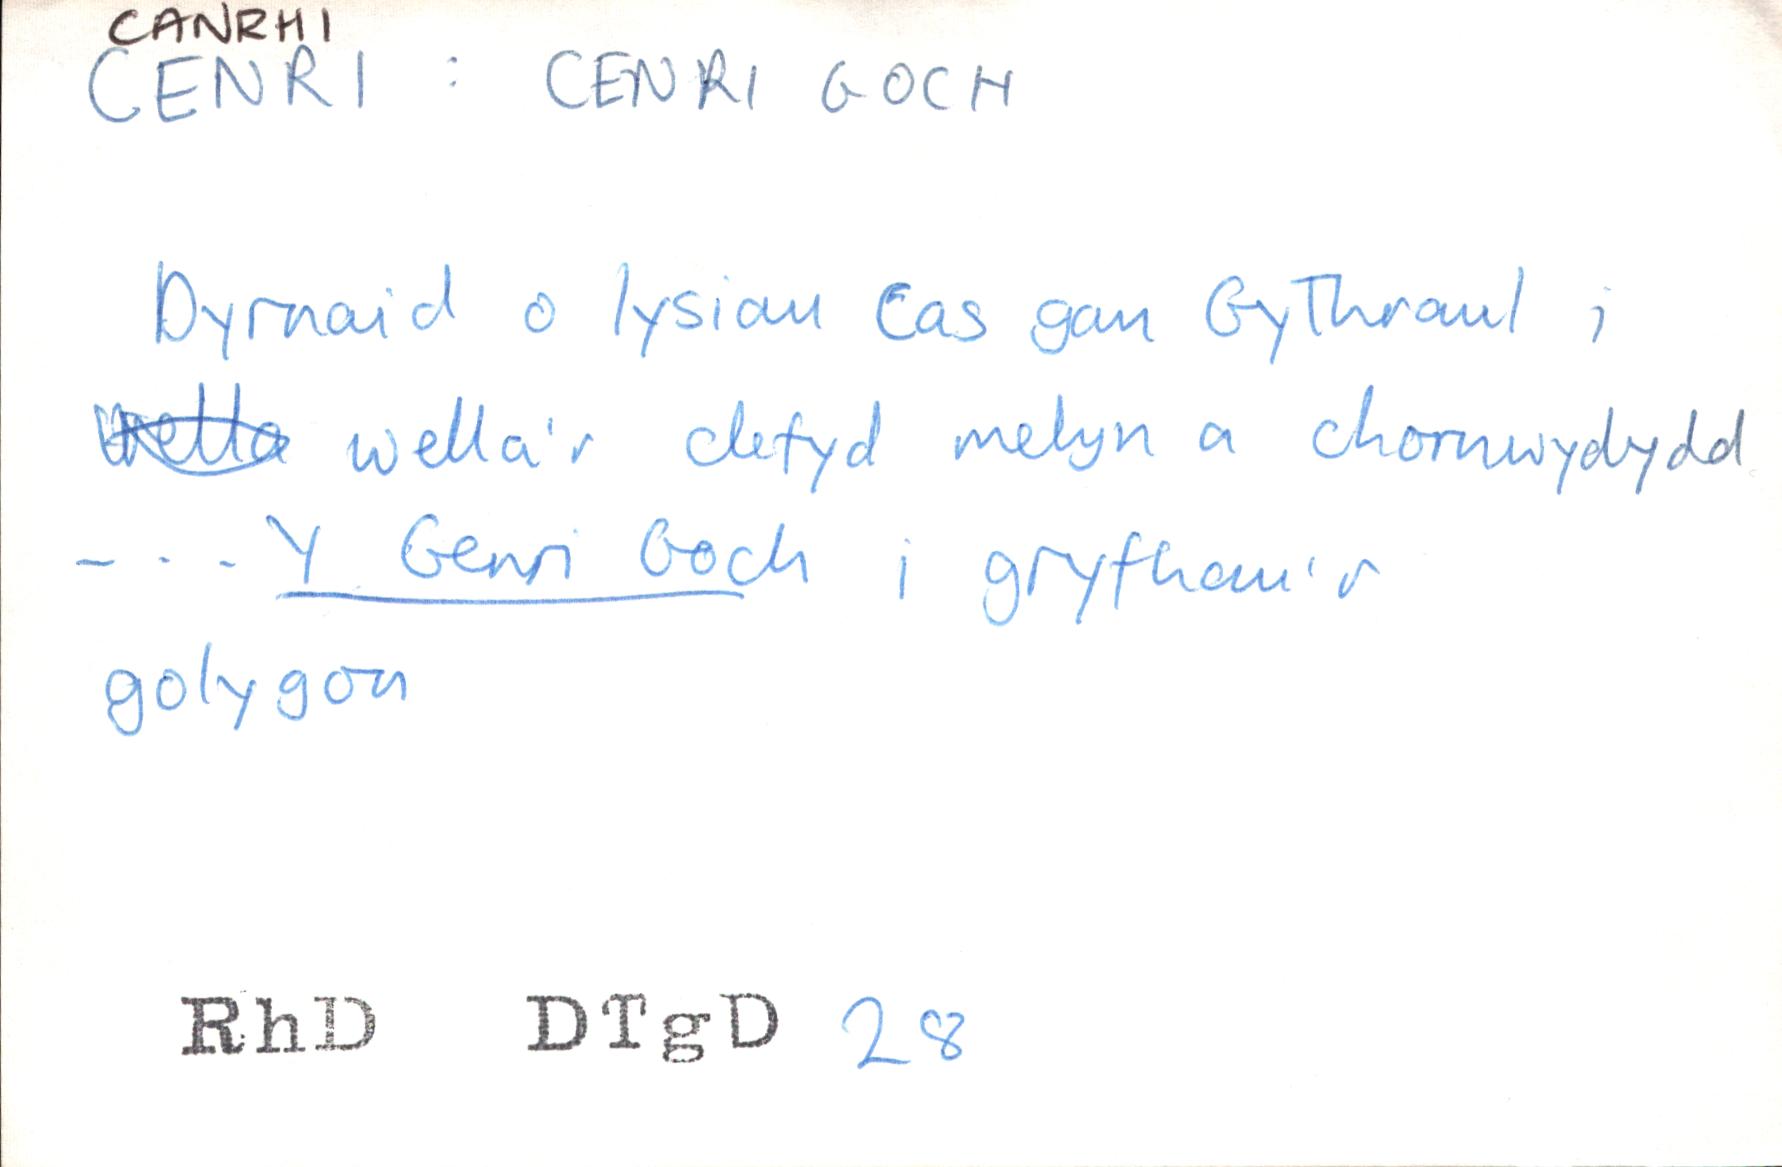 CANRHI
CENRI : CENRI GOCH
Dyrnaid o lysiau Cas gan Gythraul i
wella wella'r clefyd melyn a chornwydydd
- . . . Y Genri Goch i gryfhau'r
golygon
RhD DTgD 28